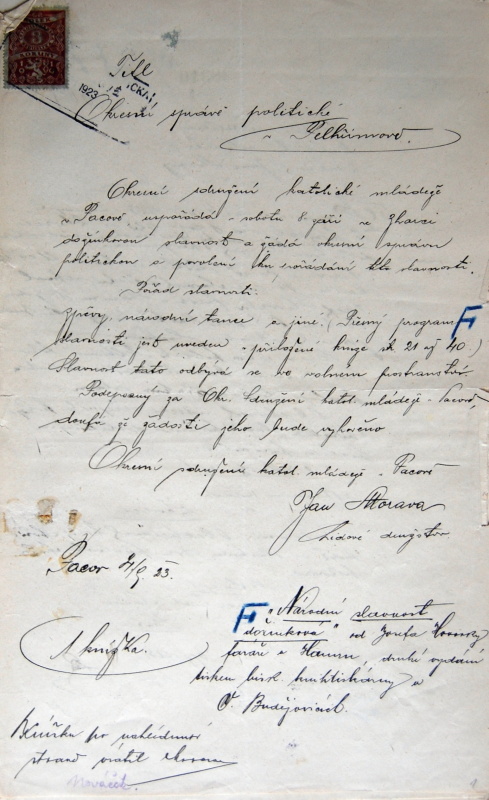 3
1923
Titl
Okresní správě politické
v Pelhřimově.
Okresní sdružení katolické mládeže
v Pacově uspořádá v sobotu 8 září ve
dožínkovou slavnost a žádá okresní správu
politickou o povolení ku pořádání této slavnosti.
Pořad slavnosti:
zpěvy, národní tance a jiné. (Přesný program
slavnosti jest uveden v přiložené knize str 21 až 40.)
Slavnost tato odbývá se ve volném prostranství
Podepsaný za Okr. Sdružení katol. mládeže v Pacově,
doufá že žádosti jeho bude vyhověno
Okresní sdružení katol. mládeže v Pacově
Jan Morava
Lidové družstvo
Pacov 4/9 23.
"Národní slavnost
dožínková" od Josefa
faráře v druhé vydání
tiskem bisk. knihtiskárny v
Č. Budějovicích.
1 knížka.
Knížku po nahlédnutí
vrátit
Nováček